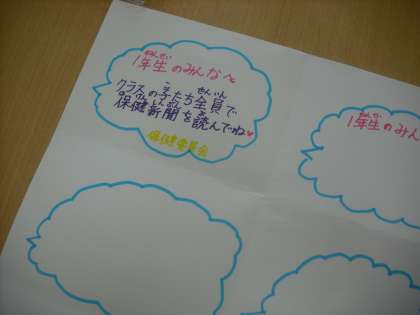 1年生のみんなへ
クラスの子たち全員で
保健新聞を読んでね♥
保健委員会
1年生のみん